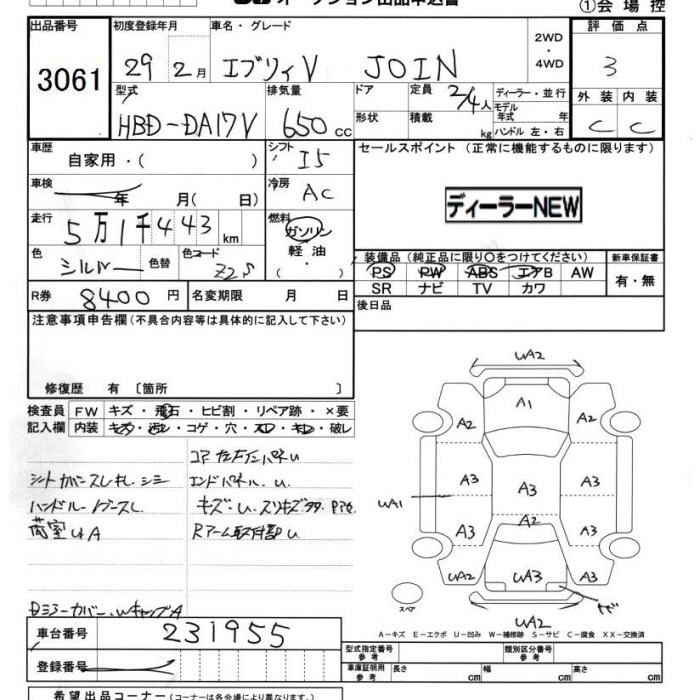 オークション出品申込書
①会場控
出品番号
3061
初度登録年月
29年2月
車名・グレード
エブリィV JOIN
2WD
・
4WD
評価点
3
型式
HBD-DA17V
排気量
650cc
ドア
形状
定員
2/4人
積載
kg
ディーラー・並行
モデル
年式 年
ハンドル 左・右
外装
内装
C
C
車歴
自家用・( )
シフト
I5
セールスポイント (正常に機能するものに限ります)
車検
年 月( 日)
冷房
AC
ディーラーNEW
走行
5万1千443km
燃料
ガソリン
軽油・
( )
色
シルバー
色替
色コード
Z2S
装備品 (純正品に限り○をつけてください)
PS PW ABS エアB AW
SR ナビ TV カワ
新車保証書
有・無
R券
8400円
名変期限 月 日
後日品
注意事項申告欄 (不具合内容等は具体的に記入して下さい)
修復歴 有 〔箇所 〕
検査員
記入欄
FW キズ・飛石・ヒビ割・リペア跡・×要
内装 キズ・汚レ・コゲ・穴・スレ・キレ・破レ
シートカバースレ、キレ、シミ
エンドパネル.U.
荷室UA
Rアーム取付部U
車台番号
231955
登録番号
UA2
A1
A2
A2
A3
A3
A3
A2
UA1
A3
A3
UA2
UA3
A3
UA2
スペア
A−キズ E−エクボ U−凹み W−補修跡 S−サビ C−腐食 XX−交換済
型式指定番号
参考
類別区分番号
参考
車庫証明用
参考
長さ cm
幅 cm
高さ cm
希望出品コーナー (コーナーは各会場により異なります。)